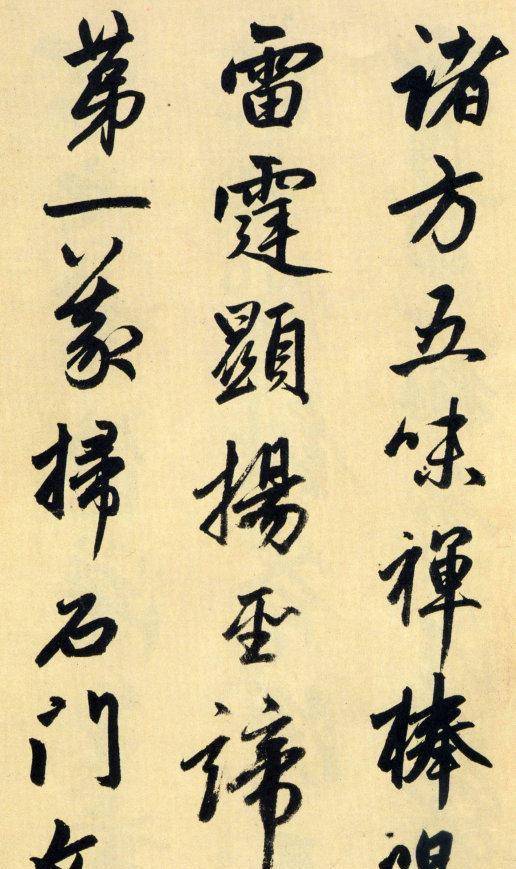 諸方五味禪棒
雷霆顯揚聖諦
第一義掃石門文